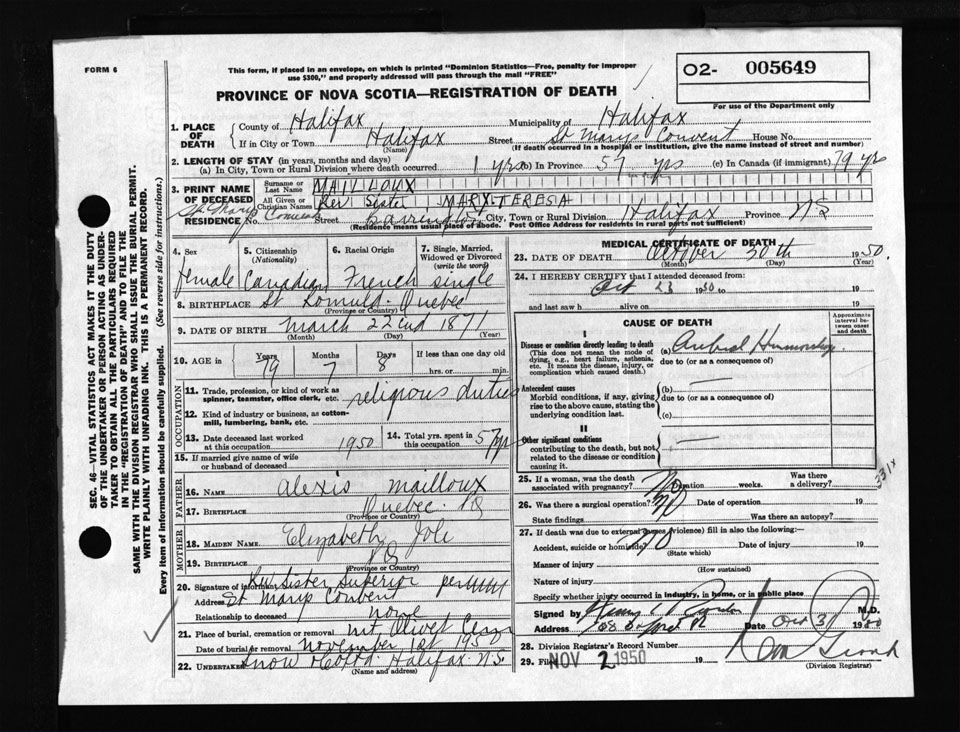 FORM 6
This form, if placed in an envelope, on which is printed "Dominion Statistics—Free, penalty for improper
use $300," and properly addressed will pass through the mail "FREE"
PROVINCE OF NOVA SCOTIA—REGISTRATION OF DEATH
O2- 005649
For use of the Department only
SEC. 46—VITAL STATISTICS ACT MAKES IT THE DUTY
OF THE UNDERTAKER OR PERSON ACTING AS UNDER-
TAKER TO OBTAIN ALL THE PARTICULARS REQUIRED
IN THE "REGISTRATION OF DEATH" AND TO FILE THE
SAME WITH THE DIVISION REGISTRAR WHO SHALL ISSUE THE BURIAL PERMIT.
WRITE PLAINLY WITH UNFADING INK. THIS IS A PERMANENT RECORD.
Every item of information should be carefully supplied. (See reverse side for instructions.)
1. PLACE OF DEATH
County of Halifax Municipality of Halifax
If in City or Town Halifax Street St Marys Convent House No.
(Name) (If death occurred in a hospital or institution, give the name instead of street and number)
2. LENGTH OF STAY (in years, months and days)
(a) In City, Town or Rural Division where death occurred 1 yrs (b) In Province 57 yrs (c) In Canada (if immigrant) 79 yrs
3. PRINT NAME OF DECEASED
Surname or Last Name MAILLOUX
All Given or Christian Names Rev Sister MARY TERESA
St. Marys Convent
RESIDENCE No. Street Barrington City, Town or Rural Division Halifax Province NS
(Residence means usual place of abode. Post Office Address for residents in rural parts not sufficient)
4. Sex female
5. Citizenship (Nationality) Canadian
6. Racial Origin French
7. Single, Married, Widowed or Divorced (write the word) single
8. BIRTHPLACE St Romuld Quebec
(Province or Country)
9. DATE OF BIRTH March 22nd 1871
(Month) (Day) (Year)
10. AGE in Years 79 Months 7 Days 8 If less than one day old hrs. or min.
OCCUPATION
11. Trade, profession or kind of work as spinner, teamster, office clerk, etc. religious duties
12. Kind of industry or business, as cotton-mill, lumbering, bank, etc.
13. Date deceased last worked at this occupation 1950
14. Total yrs. spent in this occupation 57 yrs
15. If married give name of wife or husband of deceased
FATHER
16. NAME alexis mailloux
17. BIRTHPLACE Quebec PQ
(Province or Country)
MOTHER
18. MAIDEN NAME Elizabeth
19. BIRTHPLACE PQ
(Province or Country)
20. Signature of informant Rev Sister Superior per
Address St Marys Convent
Relationship to deceased none
21. Place of burial, cremation or removal mt Olivet
Date of burial or removal november 1st 1950
22. UNDERTAKER Snow Halifax N.S.
(Name and address)
MEDICAL CERTIFICATE OF DEATH
23. DATE OF DEATH October 30th 1950.
(Month) (Day) (Year)
24. I HEREBY CERTIFY that I attended deceased from:
Oct 23 1950 to 19
and last saw h alive on 19
CAUSE OF DEATH
Approximate interval between onset and death
I
Disease or condition directly leading to death
(This does not mean the mode of dying, e.g., heart failure, asthenia, etc. It means the disease, injury, or complication which caused death.)
(a)
due to (or as a consequence of)
Antecedent causes
Morbid conditions, if any, giving rise to the above cause, stating the underlying condition last.
(b)
due to (or as a consequence of)
(c)
II
Other significant conditions
contributing to the death, but not related to the disease or condition causing it.
331X
25. If a woman, was the death associated with pregnancy? No Duration weeks. Was there a delivery?
26. Was there a surgical operation? No Date of operation 19
State findings Was there an autopsy?
27. If death was due to external causes (violence) fill in also the following:—
Accident, suicide or homicide? No Date of injury 19
(State which)
Manner of injury
(How sustained)
Nature of injury
Specify whether injury occurred in industry, in home, or in public place
Signed by M.D.
Address Date Oct 31 1950
28. Division Registrar's Record Number
29. Filed NOV 2 1950 19
(Division Registrar)